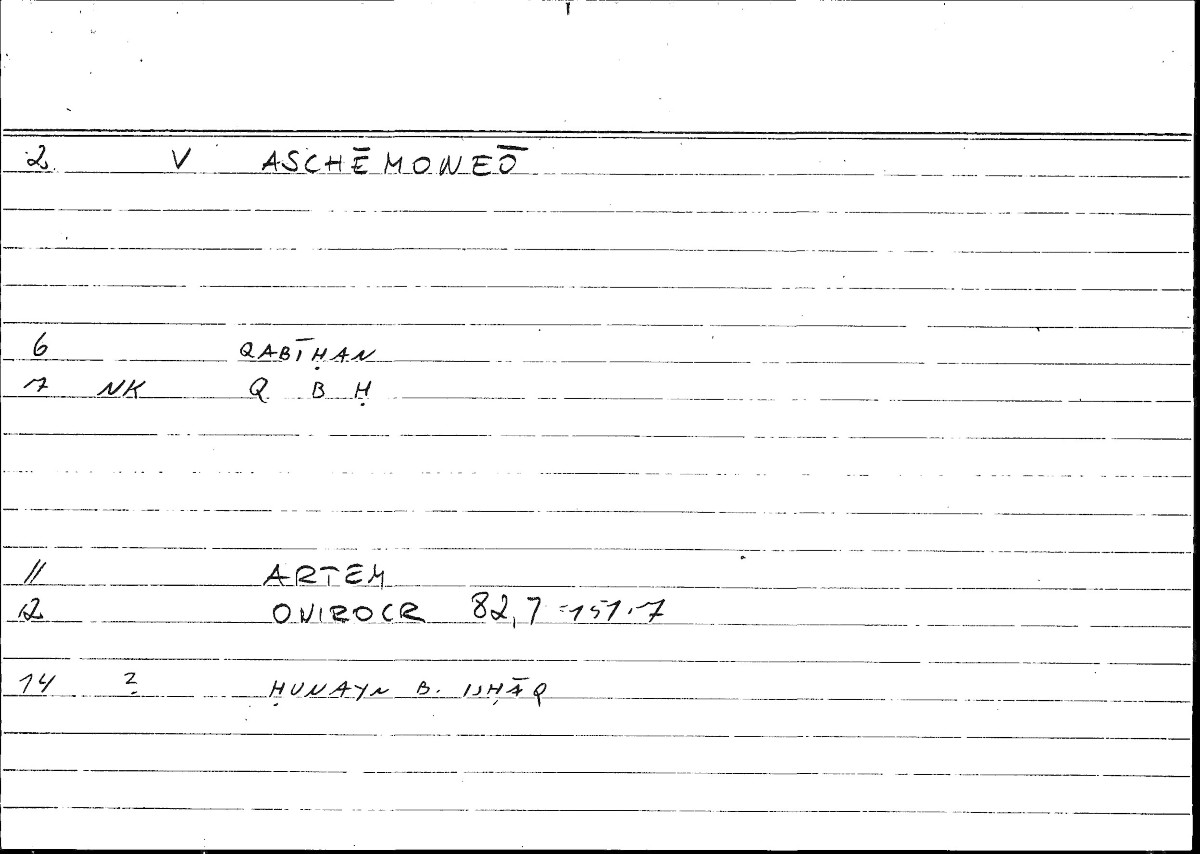 2 V ASCHĒMONEŌ
6 QABĪḤAN
7 NK Q B Ḥ
11 ARTEM
12 ONIROCR 82,7 = 151.7
14 ? ḤUNAYN B. ISḤĀQ